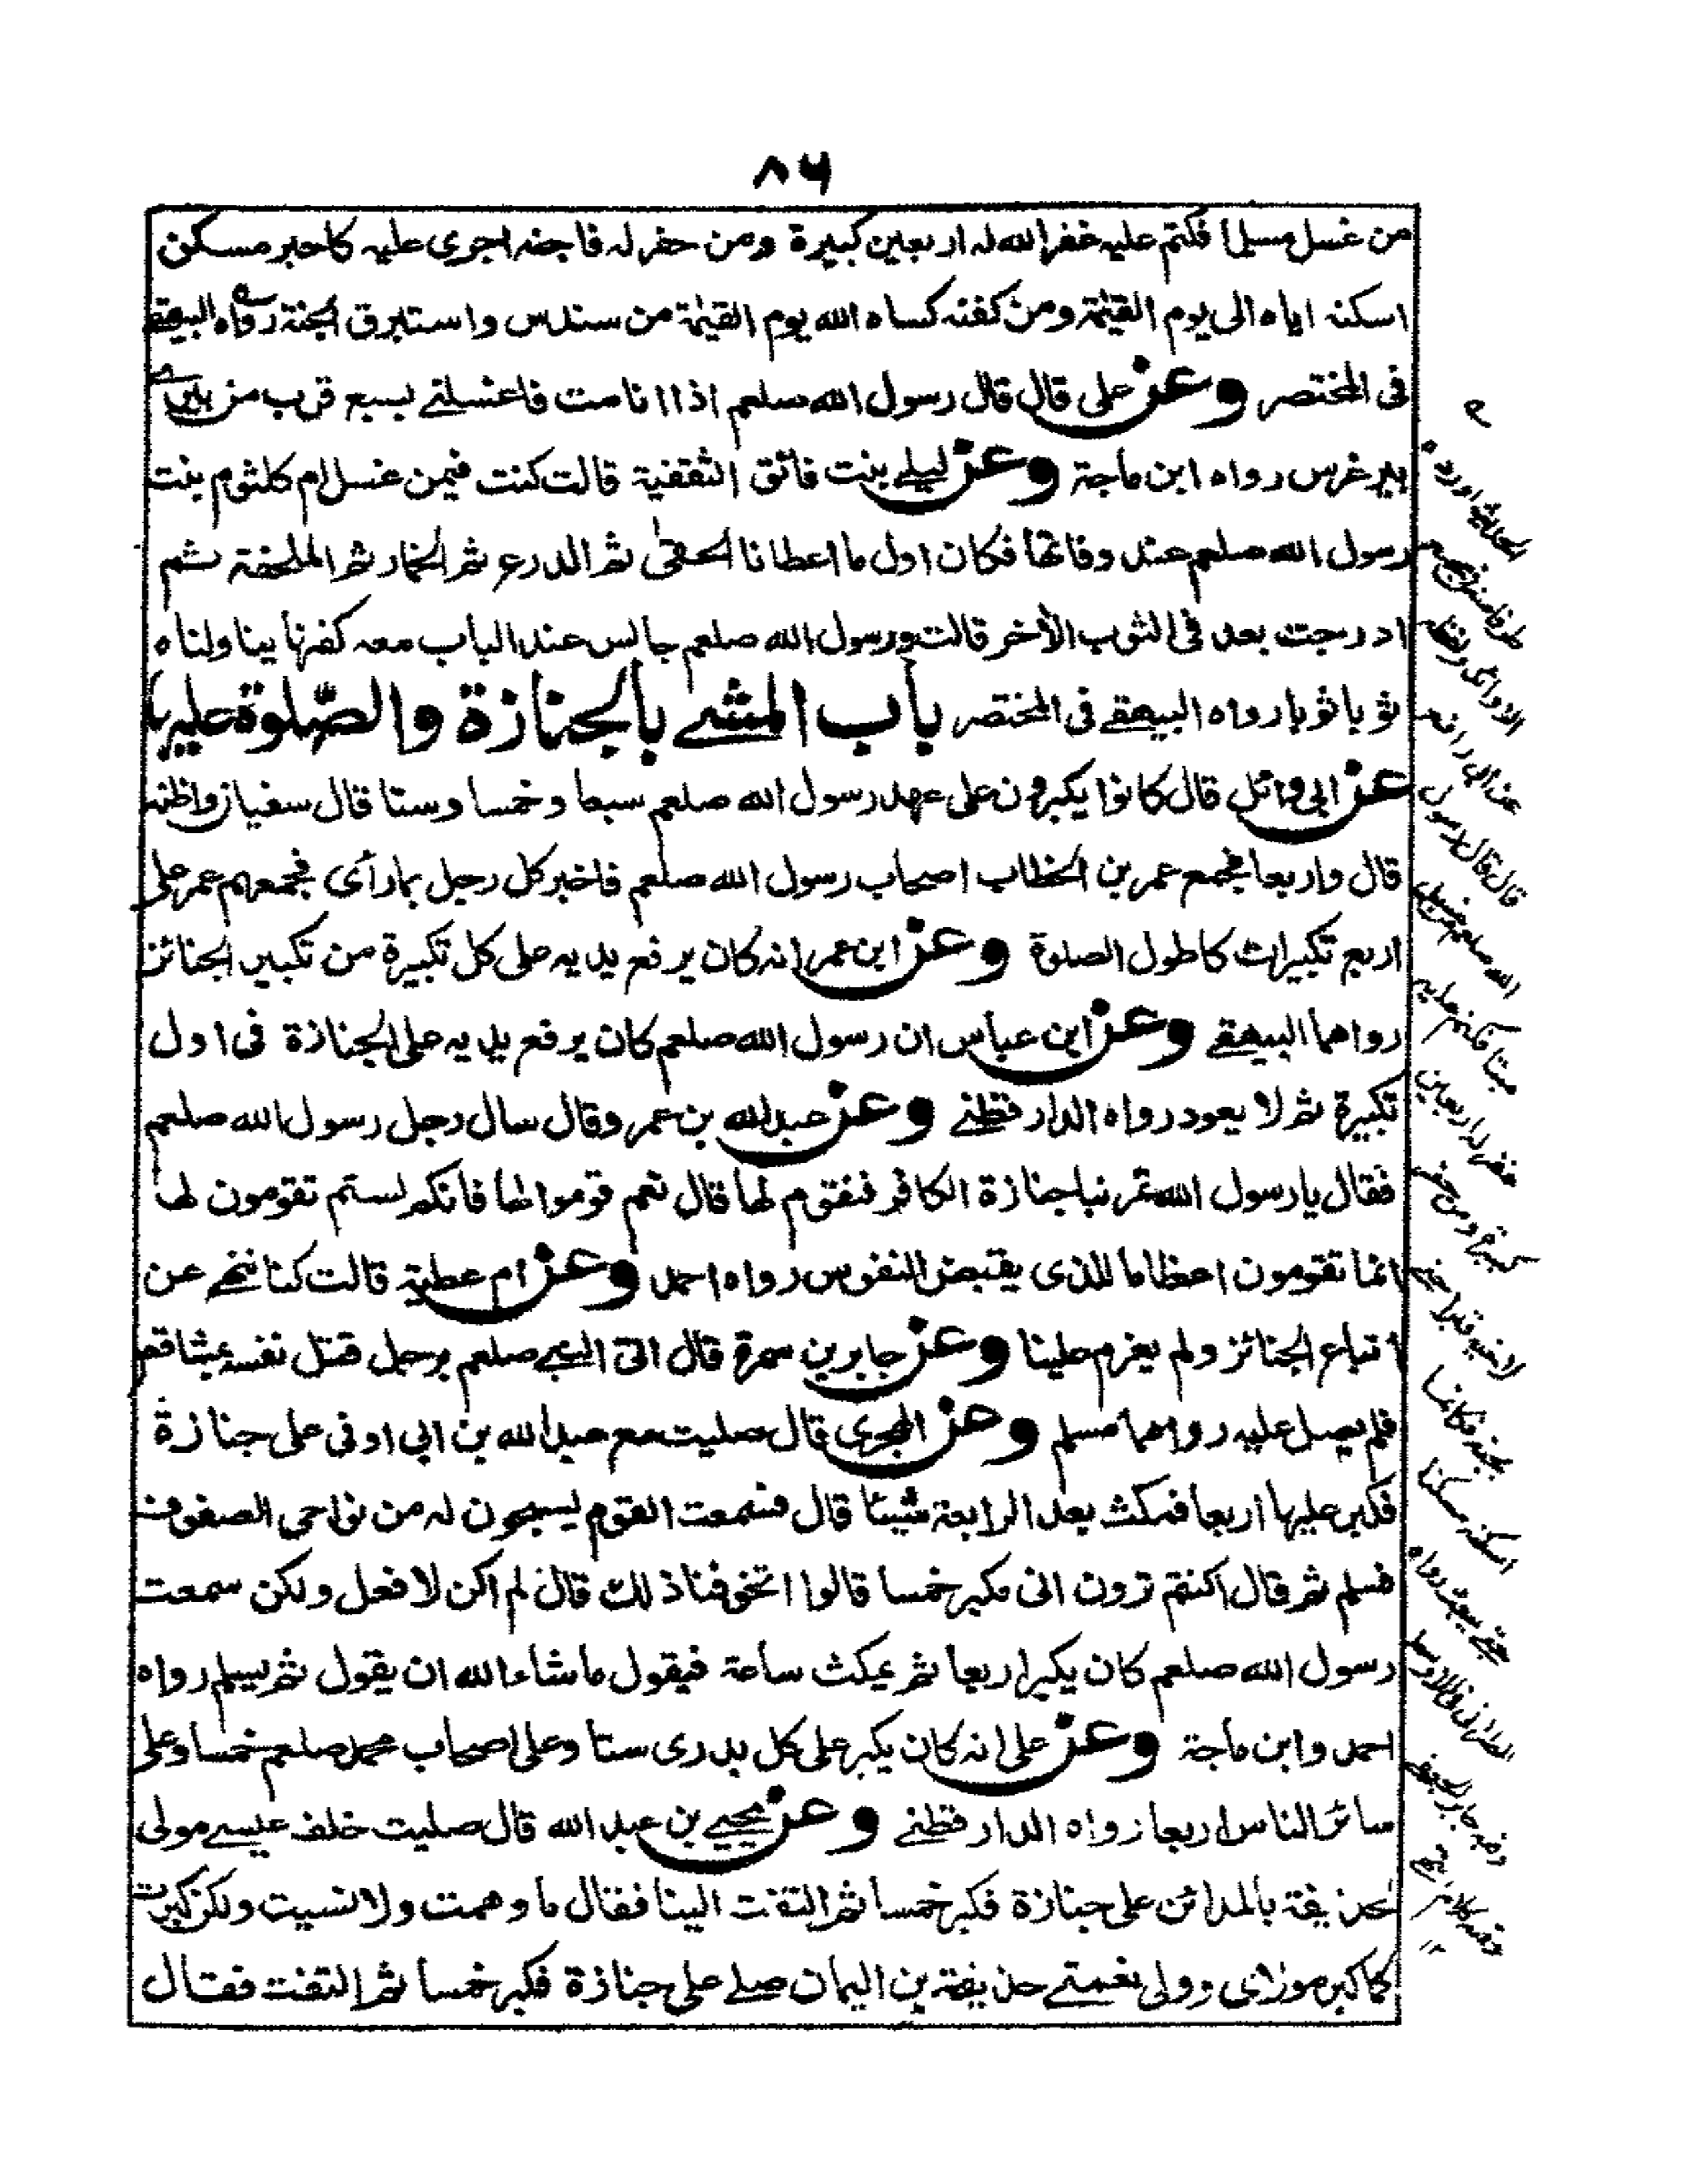 ٨٦
من غسل مسلما فكتم عليه غفر الله له اربعين كبيرة ومن حفر له فاجنه اجرى عليه كاجر مسكن
اسكنه اياه الى يوم القيٰمة ومن كفنه كساه الله يوم القيٰمة من سندس واستبرق الجنة رواه البيهقے
فى المختصر وعن على قال قال رسول الله صلعم اذا انا مت فاغسلنے بسبع قرب من بيرے
بير غرس رواه ابن ماجة وعن ليلے بنت قائق الثقفية قالت كنت فيمن غسل ام كلثوم بنت
رسول الله صلعم عند وفاتها فكان اول ما اعطانا الحقى ثم الدرع ثم الخمار ثم الملحفة ثم
ادرجت بعد فى الثوب الأخر قالت ورسول الله صلعم جالس عند الباب معه كفنها يناولناه
ثوبا ثوبا رواه البيهقے فى المختصر باب المشے بالجنازة والصّلوة عليها
عن ابى وائل قال كانوا يكبرون على عهد رسول الله صلعم سبعا وخمسا وستا قال سفيان واظنه
قال واربعا فجمع عمر بن الخطاب اصحاب رسول الله صلعم فاخبر كل رجل بما رأى فجمعهم عمر على
اربع تكبيرات كاطول الصلوة وعن ابن عمر انه كان يرفع يديه على كل تكبيرة من تكبير الجنائز
رواهما البيهقے وعن ابن عباس ان رسول الله صلعم كان يرفع يديه على الجنازة فى اول
تكبيرة ثم لا يعود رواه الدارقطنے وعن عبدالله بن عمر وقال سال رجل رسول الله صلعم
فقال يا رسول الله تمر بنا جنازة الكافر فنقوم لها قال نعم قوموا لها فانكم لستم تقومون لها
انما تقومون اعظاما للذى يقبض النفوس رواه احمد وعن ام عطية قالت كنا ننهے عن
اتباع الجنائز ولم يعزم علينا وعن جابر بن سمرة قال اتى النبے صلعم برجل قتل نفسه بمشاقص
فلم يصل عليه رواهما مسلم وعن الهجرى قال صليت مع عبد الله بن ابى اوفى على جنازة
فكبر عليها اربعا فمكث بعد الرابعة شيئا قال فسمعت القوم يسبحون له من نواحى الصفوف
فسلم ثم قال اكنتم ترون انى مكبر خمسا قالوا اتخوفنا ذلك قال لم اكن لافعل ولكن سمعت
رسول الله صلعم كان يكبر اربعا ثم يمكث ساعة فيقول ما شاء الله ان يقول ثم يسلم رواه
احمد وابن ماجة وعن على انه كان يكبر على كل بدرى ستا وعلى اصحاب محمد صلعم خمسا وعلى
سائر الناس اربعا رواه الدارقطنے وعن يحيے بن عبد الله قال صليت خلف عيسے مولى
لحذيفة بالمدائن على جنازة فكبر خمسا ثم التفت الينا فقال ما وهمت ولا نسيت ولكن كبرت
كما كبر مولاى وولى نعمتے حذيفة بن اليمان صلے على جنازة فكبر خمسا ثم التفت فقال
قال قال رسول
الله صلعم من غسل
ميتا فكتم عليه
غفر له اربعين
كبيرة ومن حفر